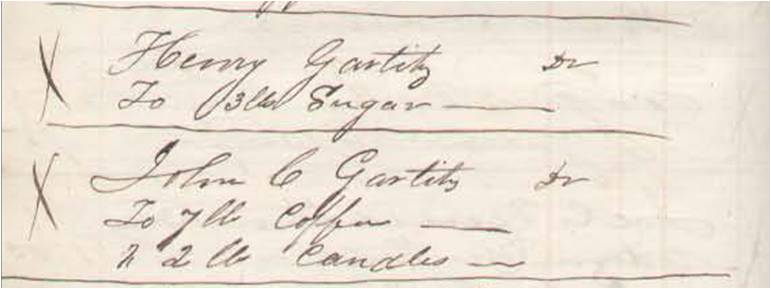 X Henry Gartitz Dr
To 3 lb Sugar —
X John C Gartitz Dr
To 7 lb Coffee —
" 2 lb Candles —